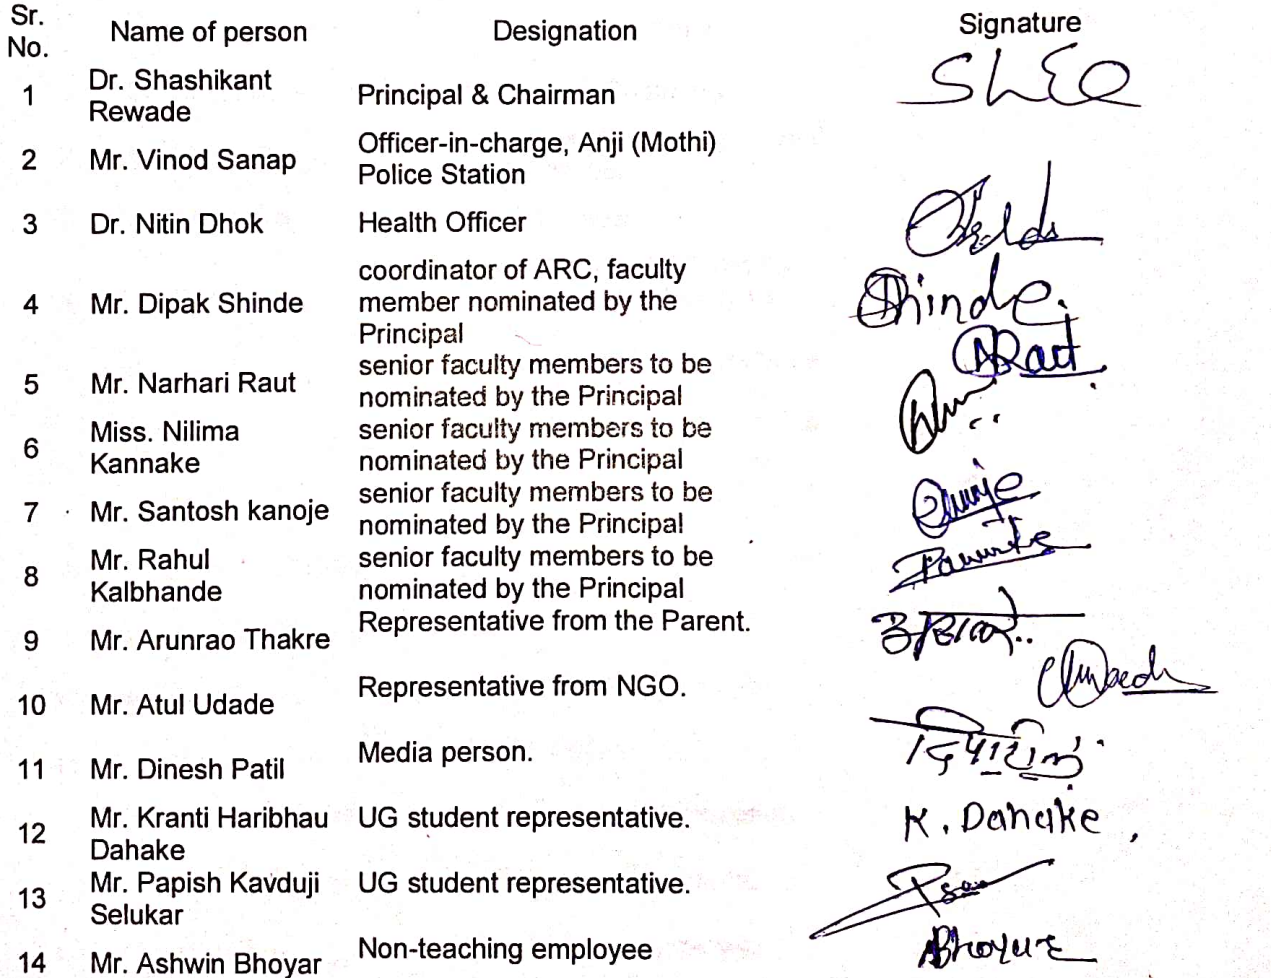 Sr.
No.
Name of person
Designation
Signature
1
Dr. Shashikant
Rewade
Principal & Chairman
2
Mr. Vinod Sanap
Officer-in-charge, Anji (Mothi)
Police Station
3
Dr. Nitin Dhok
Health Officer
4
Mr. Dipak Shinde
coordinator of ARC, faculty
member nominated by the
Principal
Shinde.
5
Mr. Narhari Raut
senior faculty members to be
nominated by the Principal
Raut
6
Miss. Nilima
Kannake
senior faculty members to be
nominated by the Principal
7
Mr. Santosh kanoje
senior faculty members to be
nominated by the Principal
8
Mr. Rahul
Kalbhande
senior faculty members to be
nominated by the Principal
9
Mr. Arunrao Thakre
Representative from the Parent.
10
Mr. Atul Udade
Representative from NGO.
11
Mr. Dinesh Patil
Media person.
12
Mr. Kranti Haribhau
Dahake
UG student representative.
K. Dahake
13
Mr. Papish Kavduji
Selukar
UG student representative.
14
Mr. Ashwin Bhoyar
Non-teaching employee